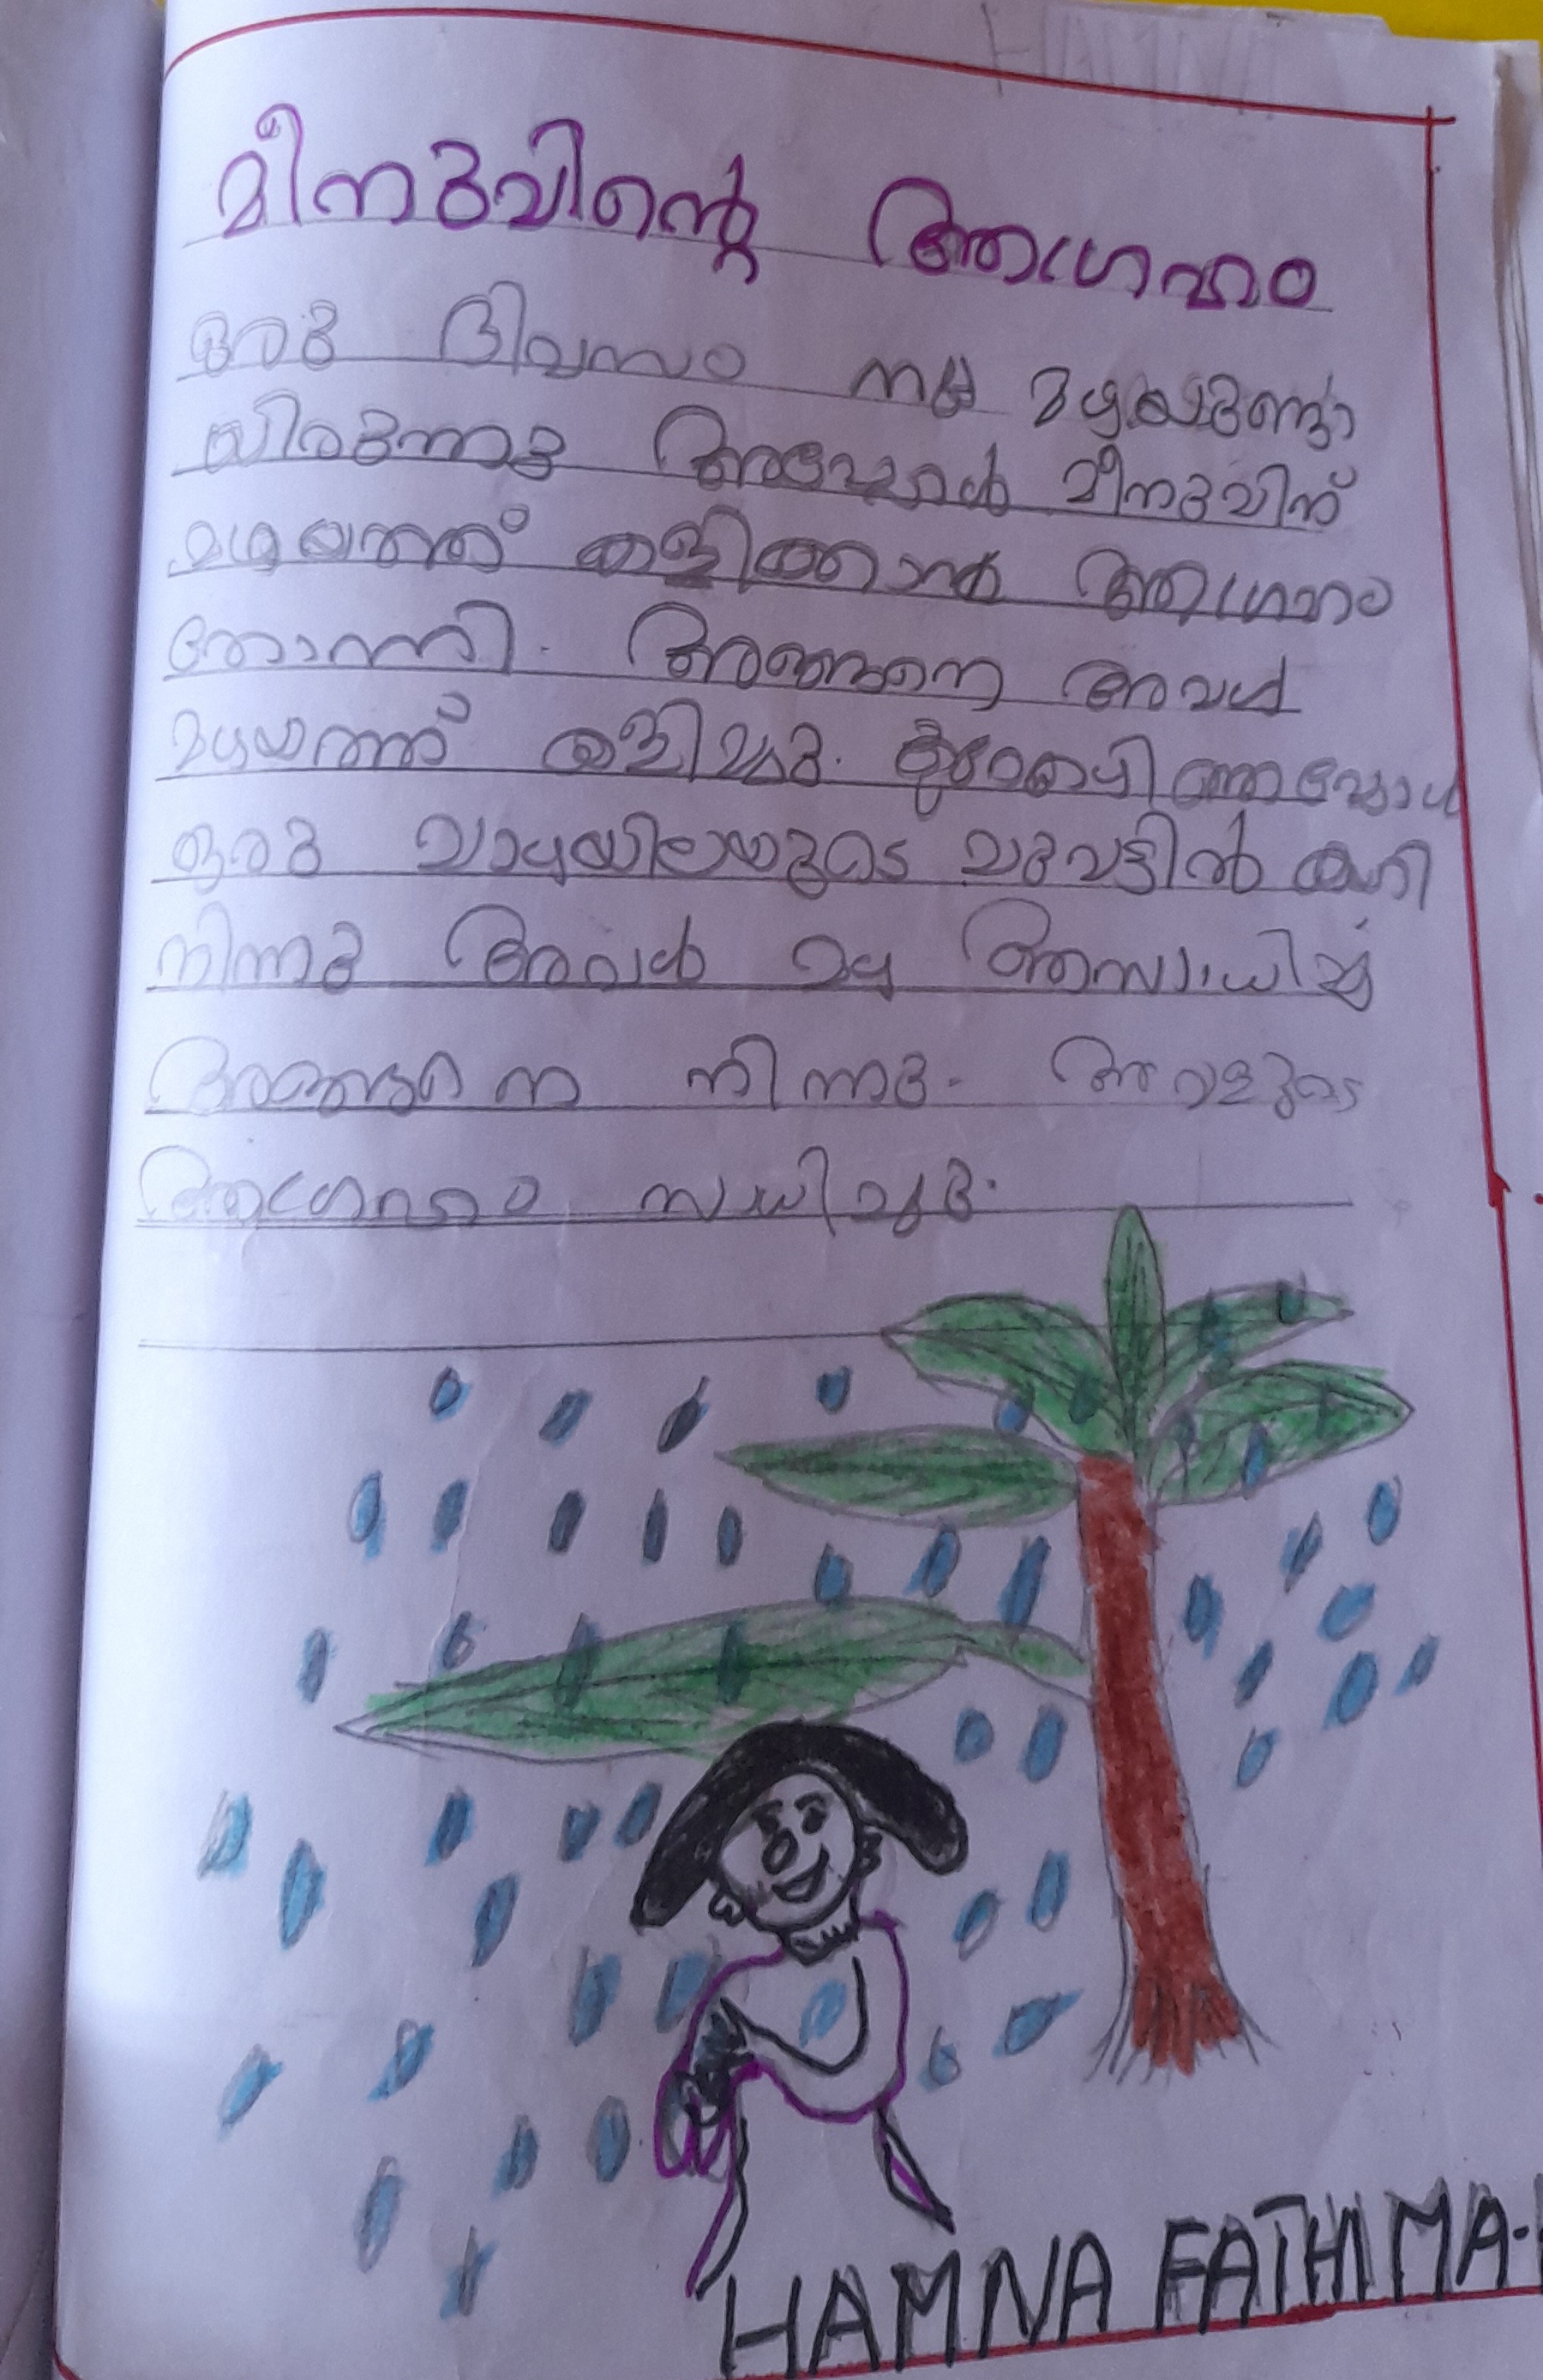 മീനുവിന്റെ ആഗ്രഹം
ഒരു ദിവസം നല്ല മഴയുണ്ടാ
യിരുന്നു അപ്പോൾ മീനുവിന്
മഴയത്ത് കളിക്കാൻ ആഗ്രഹം
തോന്നി. അങ്ങനെ അവൾ
മഴയത്ത് കളിച്ചു. കുറേകഴിഞ്ഞപ്പോൾ
ഒരു വാഴയിലയുടെ ചുവട്ടിൽ കേറി
നിന്നു അവൾ മഴ ആസ്വധിച്ച്
അങ്ങനെ നിന്നു. അവളുടെ
ആഗ്രഹം സധിച്ചു.
HAMNA FATHIMA.